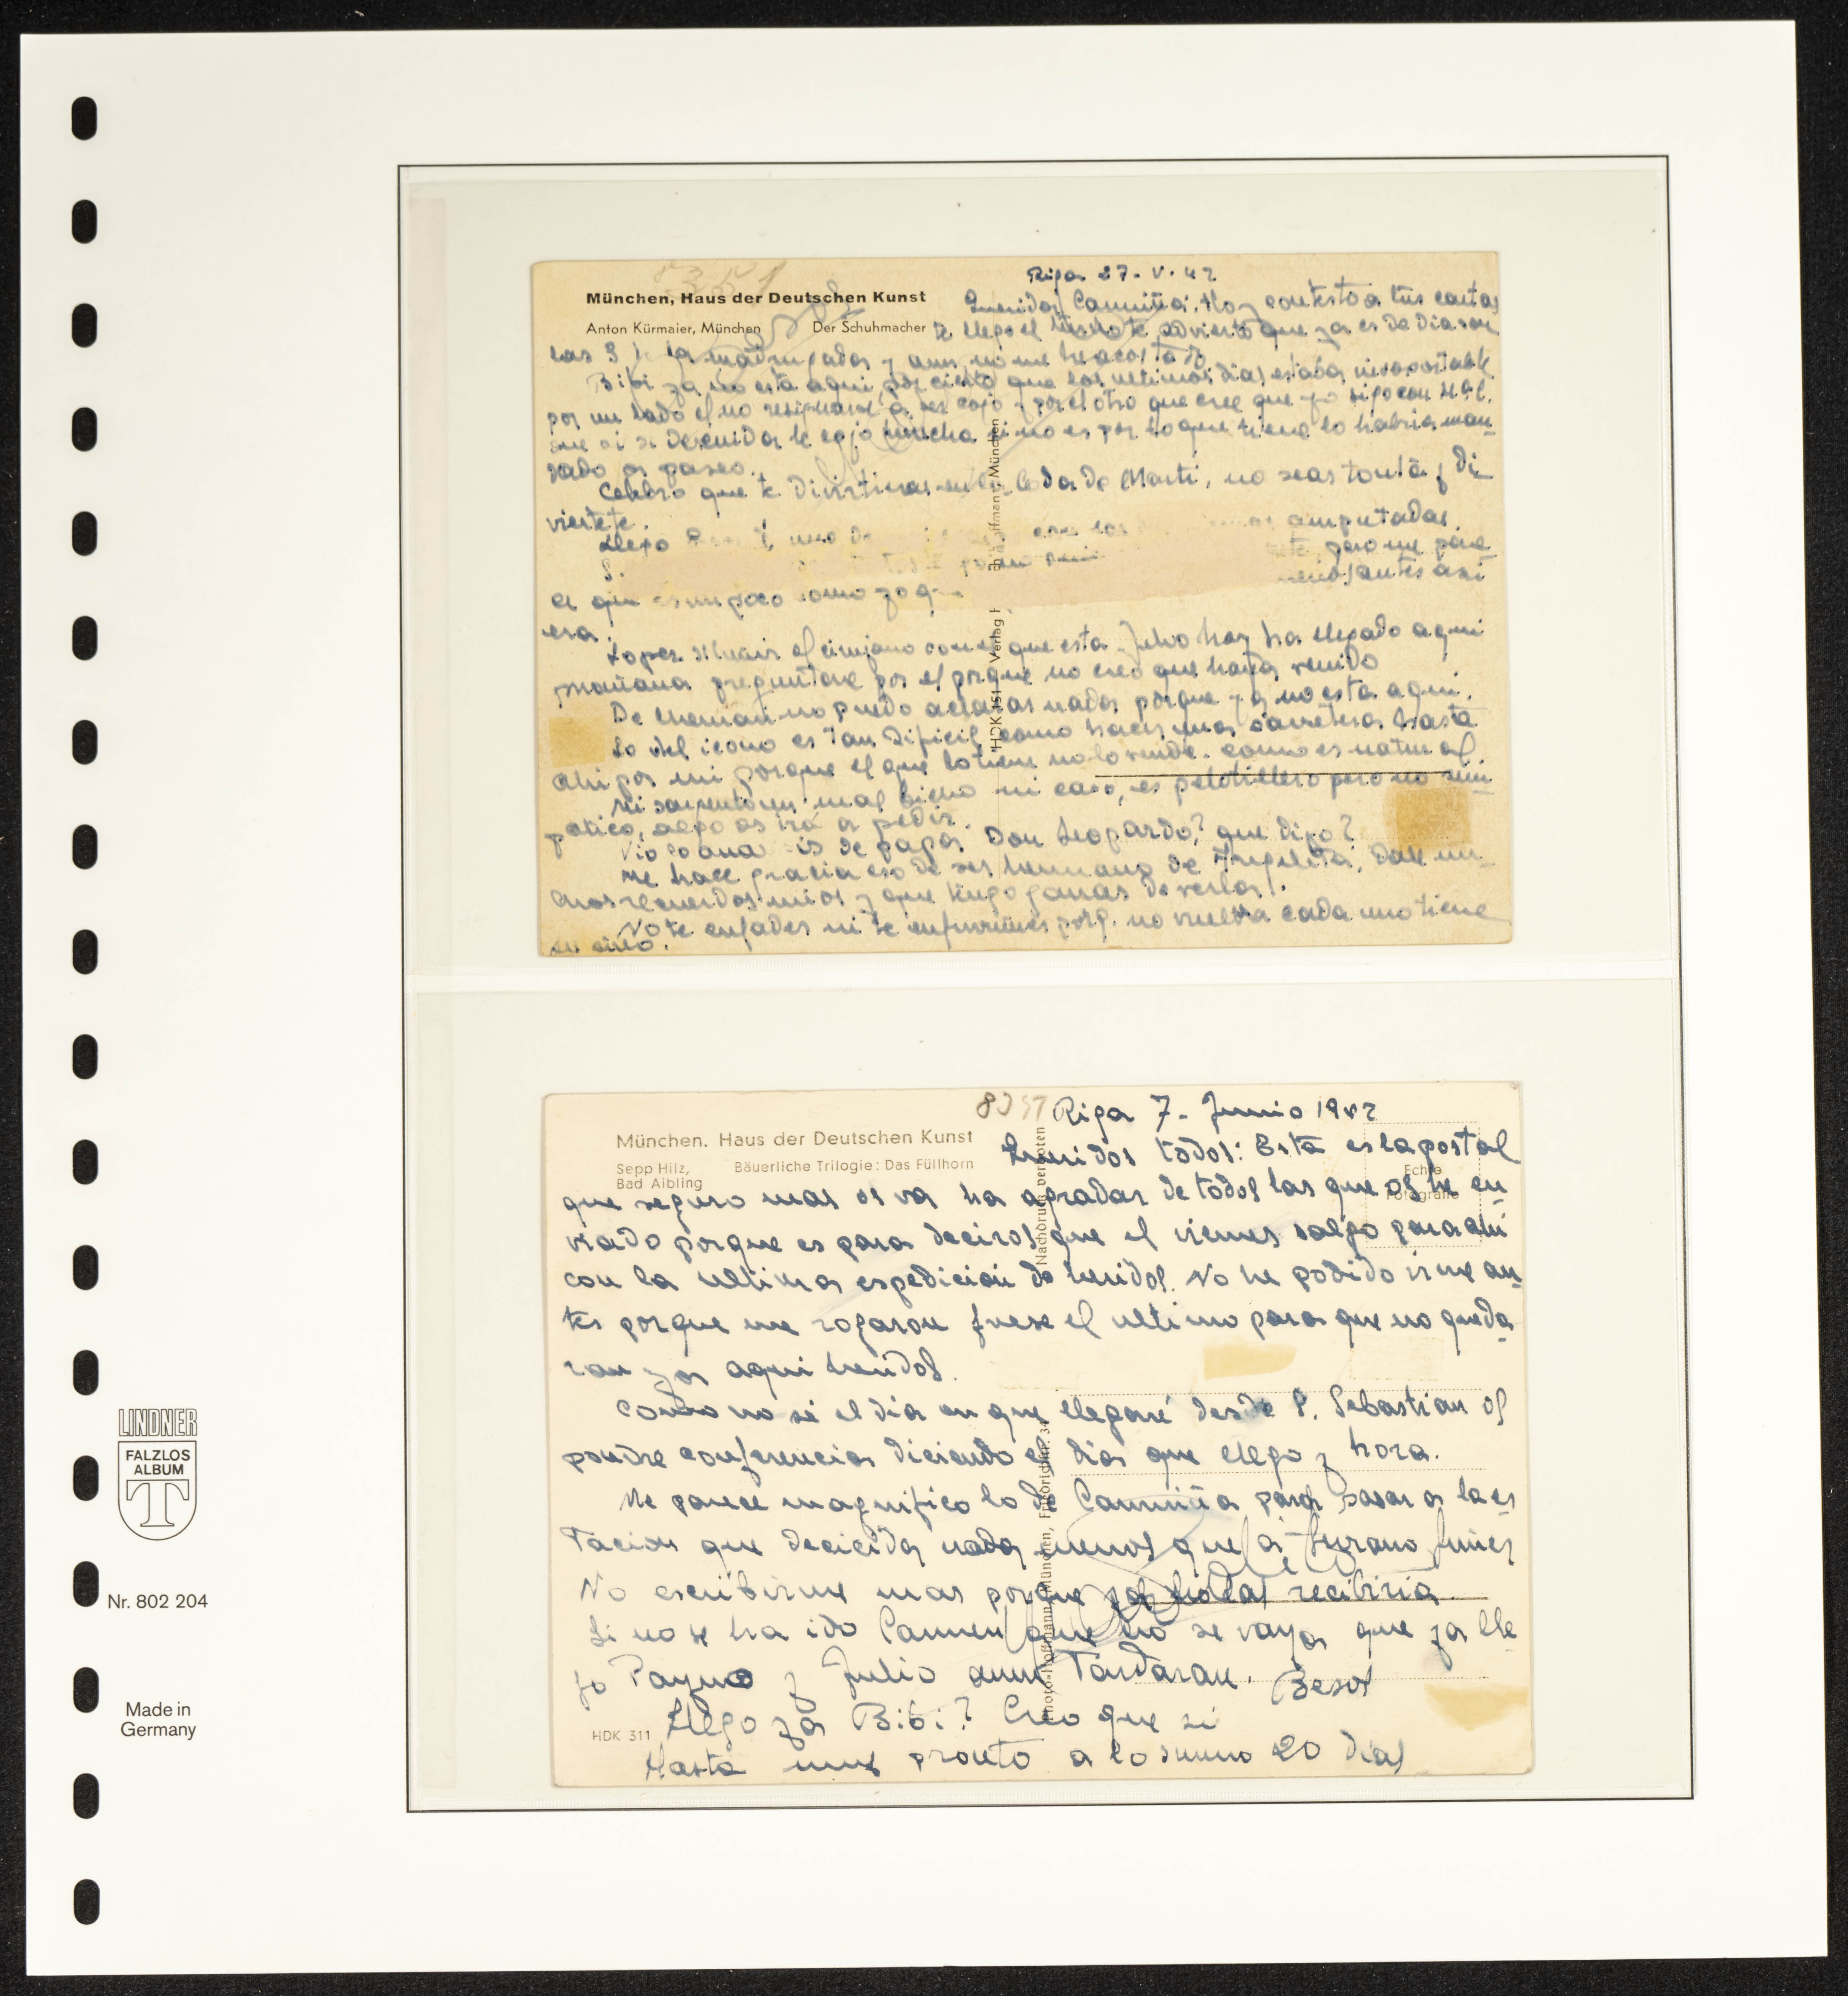 Riga 27. V. 42
München, Haus der Deutschen Kunst
Anton Kürmaier, München Der Schuhmacher
Querida Carmiña: Hoy contesto a tus cartas
te advierto que ya es de dia son
las 3 de la madrugada y aun no me he acostado
Bibi ya no esta aqui, por cierto que los ultimos dias estaba insoportable
por un lado el no resignarse a ser cojo y por el otro que cree que yo sigo con
que si se descuida le cojo no es por lo que tiene lo habria man
dado a paseo.
Celebro que te divirtieras en la boda de Marti, no seas tonta y di
viertete.
Llego uno de las amputadas.
pero me pare
ce que es un poco como yo antes asi
era.
Lopez el cirujano con el que esta Julio hoy ha llegado aqui
mañana preguntare por el porque no creo que haya venido
De no puedo aclarar nada porque ya no esta aqui.
Lo del icono es tan dificil como hacer una carretera hasta
ahi por mi porque el que lo tiene no lo vende. como es natural
Mi sargento ni caso, es pelotillero pero no sim
patico, algo os irá a pedir.
de papa Don Leopardo? que digo?
me hace gracia eso de ser hermano de Angelita, Dale mu
chos recuerdos mios y que tengo ganas de verla.
No te enfades ni te enfurruñes porq. no vuelva cada uno tiene
su sino.
HDK 151
Verlag
München
Riga 7. Junio 1942
München. Haus der Deutschen Kunst
Sepp Hilz,
Bad Aibling
Bäuerliche Trilogie: Das Füllhorn
Echte
Fotografie
Queridos todos: Esta es la postal
que seguro mas os va ha agradar de todas las que os he en
viado porque es para deciros que el viernes salgo para ahi
con la ultima espedicion de heridos. No he podido irme an
tes porque me rogaron fuese el ultimo para que no queda
ran ya aqui heridos.
Como no sé el dia en que llegaré desde S. Sebastian os
pondre conferencia diciendo el dia que llego y hora.
Me parece magnifico lo de Carmiña para pasar a la es
tacion que decicida nada menos que a Serrano Suñer
No escribirme mas porque ya no las recibiria.
Si no se ha ido Carmen que no se vaya que ya lle
go Payno y Julio aun tardaran. Besos
Llego ya Bibi? Creo que si
Hasta muy pronto a lo sumo 20 dias
HDK 311
Nachdruck verboten
Photo-Hoffmann, München, Friedrichstr. 34
LINDNER
FALZLOS
ALBUM
T
Nr. 802 204
Made in
Germany